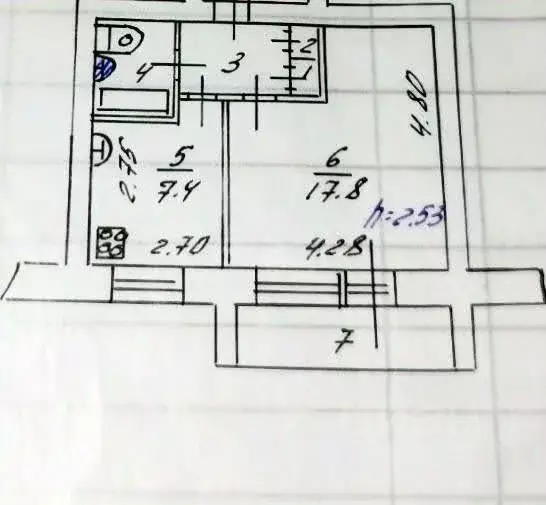 4
3
2
1
4.80
2.75
5
7.4
6
17.8
h=2.53
2.70
4.28
7